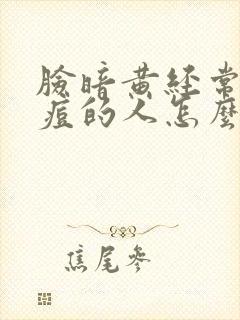 臉暗黃經常
痘的人怎麼
焦尾參